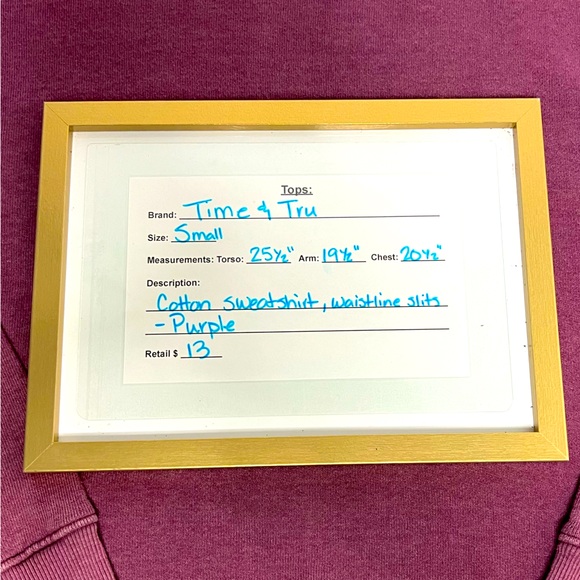 Tops:
Brand: Time & Tru
Size: Small
Measurements: Torso: 25½" Arm: 19½" Chest: 20½"
Description:
Cotton sweatshirt, waistline slits
- Purple
Retail $ 13